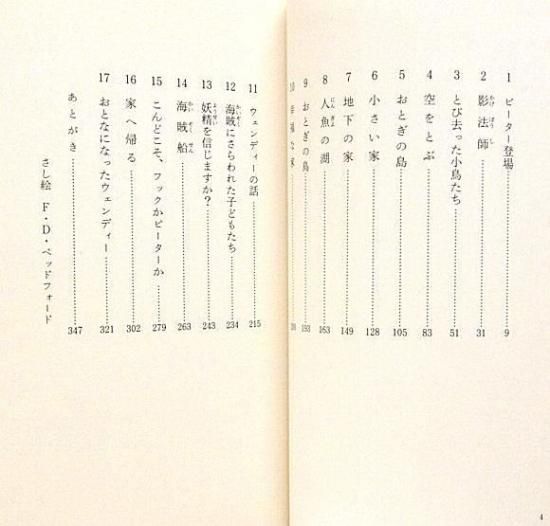 1 ピーター登場 9
2 影法師 31
3 とび去った小鳥たち 51
4 空をとぶ 83
5 おとぎの島 105
6 小さい家 128
7 地下の家 149
8 人魚の湖 163
9 おとぎの鳥 193
10 幸福な家
11 ウェンディーの話 215
12 海賊にさらわれた子どもたち 234
13 妖精を信じますか? 243
14 海賊船 263
15 こんどこそ、フックかピーターか 279
16 家へ帰る 302
17 おとなになったウェンディー 321
あとがき 347
さし絵 F・D・ベッドフォード
4